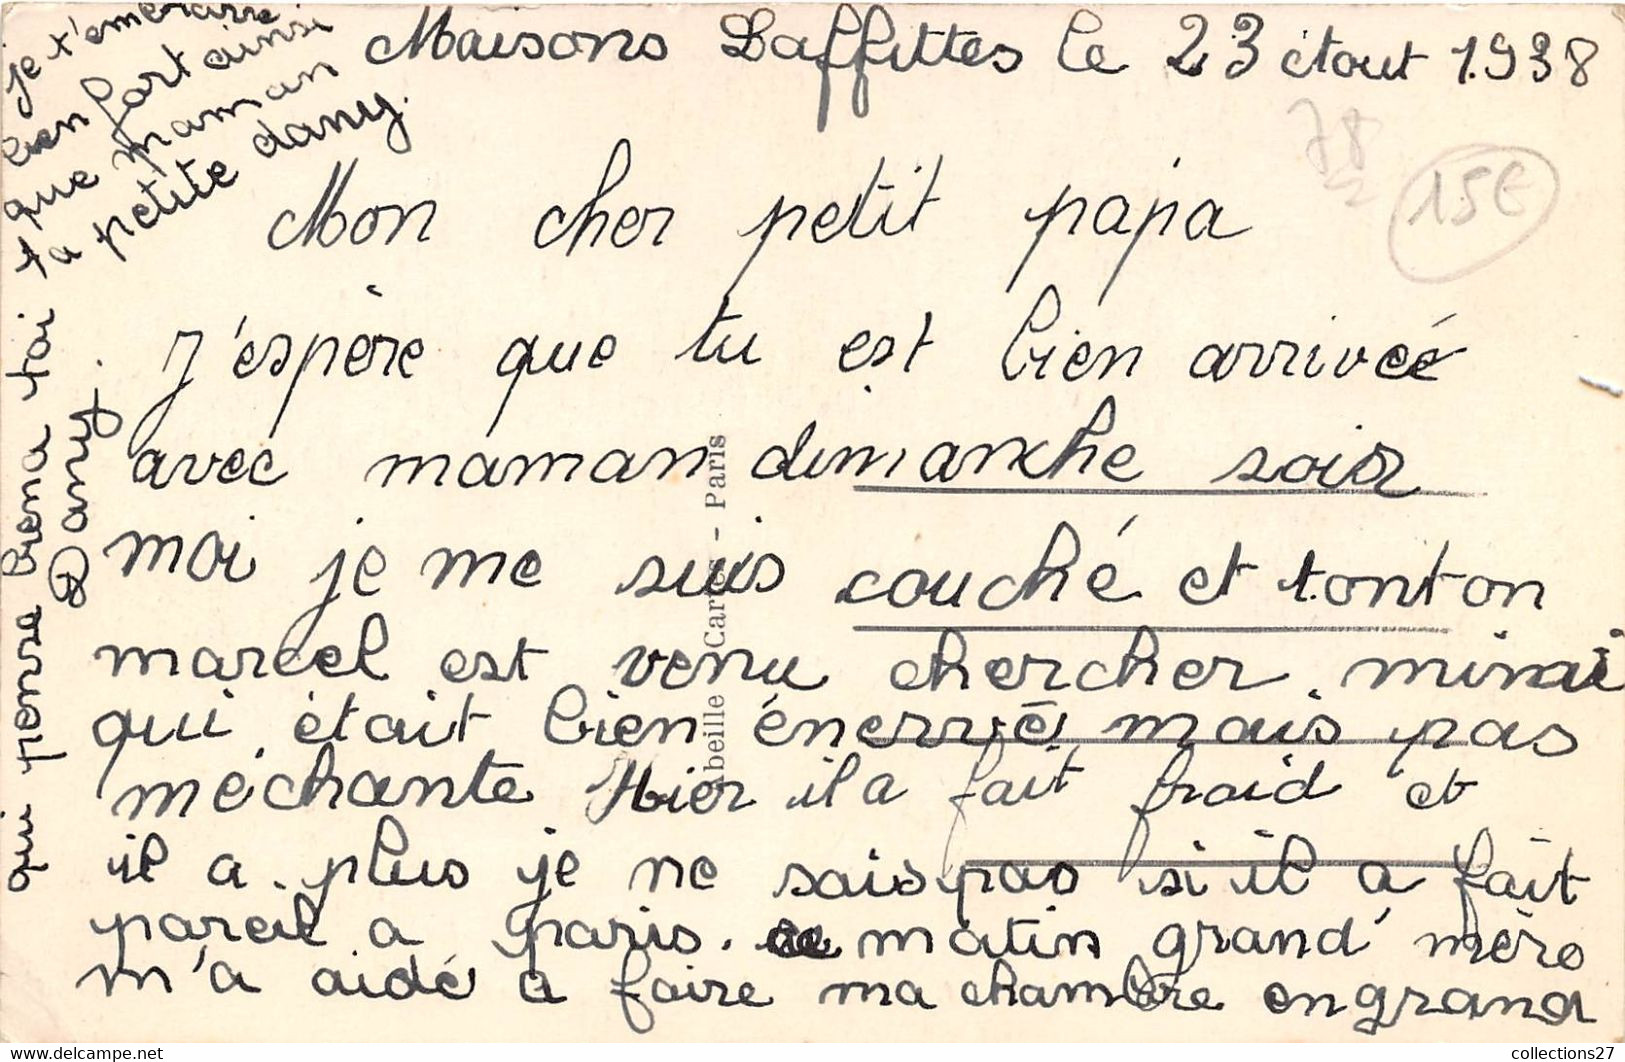 Maisons Laffittes le 23 Aout 1938
Mon cher petit papa
J'espère que tu est bien arrivée
avec maman dimanche soir
moi je me suis couché et tonton
marcel est venu chercher minai
qui était bien énervé mais pas
méchante Hier il a fait froid et
il a plus je ne sais pas si il a fait
pareil a paris. ce matin grand' mère
m'a aidé a faire ma chambre en grand
je t'embrasse
bien fort ainsi
que maman
ta petite dany.
qui pense bien a toi
Dany.
Abeille Cartes - Paris
78
15€
collections27